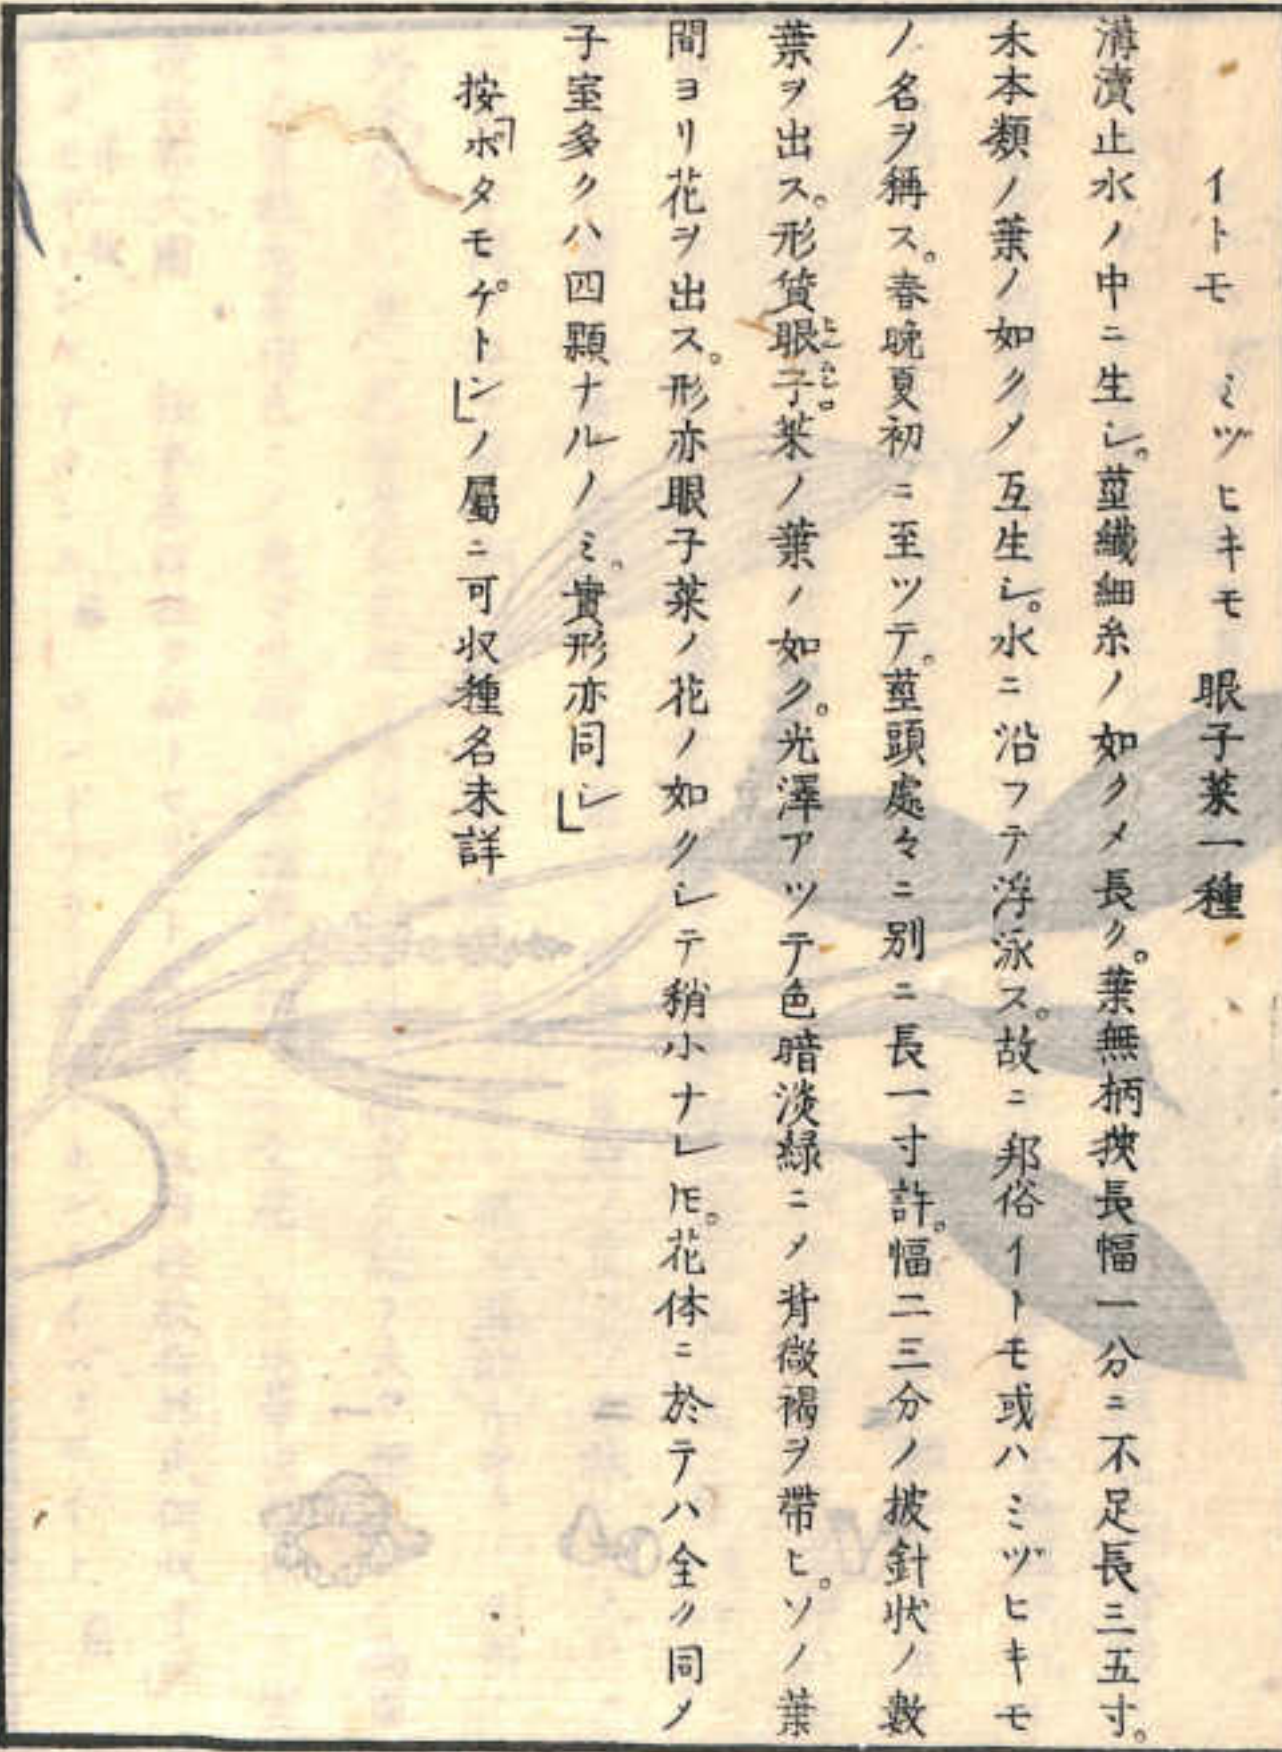 イトモ　ミヅヒキモ　眼子菜一種
溝瀆止水ノ中ニ生シ。莖纎細糸ノ如クメ長ク。葉無柄挾長幅一分ニ不足長三五寸。
禾本類ノ葉ノ如クメ互生シ。水ニ沿フテ浮泳ス。故ニ邦俗イトモ或ハミヅヒキモ
ノ名ヲ稱ス。春晩夏初ニ至ツテ。莖頭處々ニ別ニ長一寸許。幅二三分ノ披針状ノ數
葉ヲ出ス。形質眼子菜ノ葉ノ如ク。光澤アツテ色暗淡緑ニメ背微褐ヲ帶ヒ。ソノ葉
間ヨリ花ヲ出ス。形亦眼子菜ノ花ノ如クシテ稍小ナレ𪜈。花体ニ於テハ全ク同メ
子室多クハ四顆ナルノミ。實形亦同シ」
按「ポタモゲトン」ノ屬ニ可収種名未詳